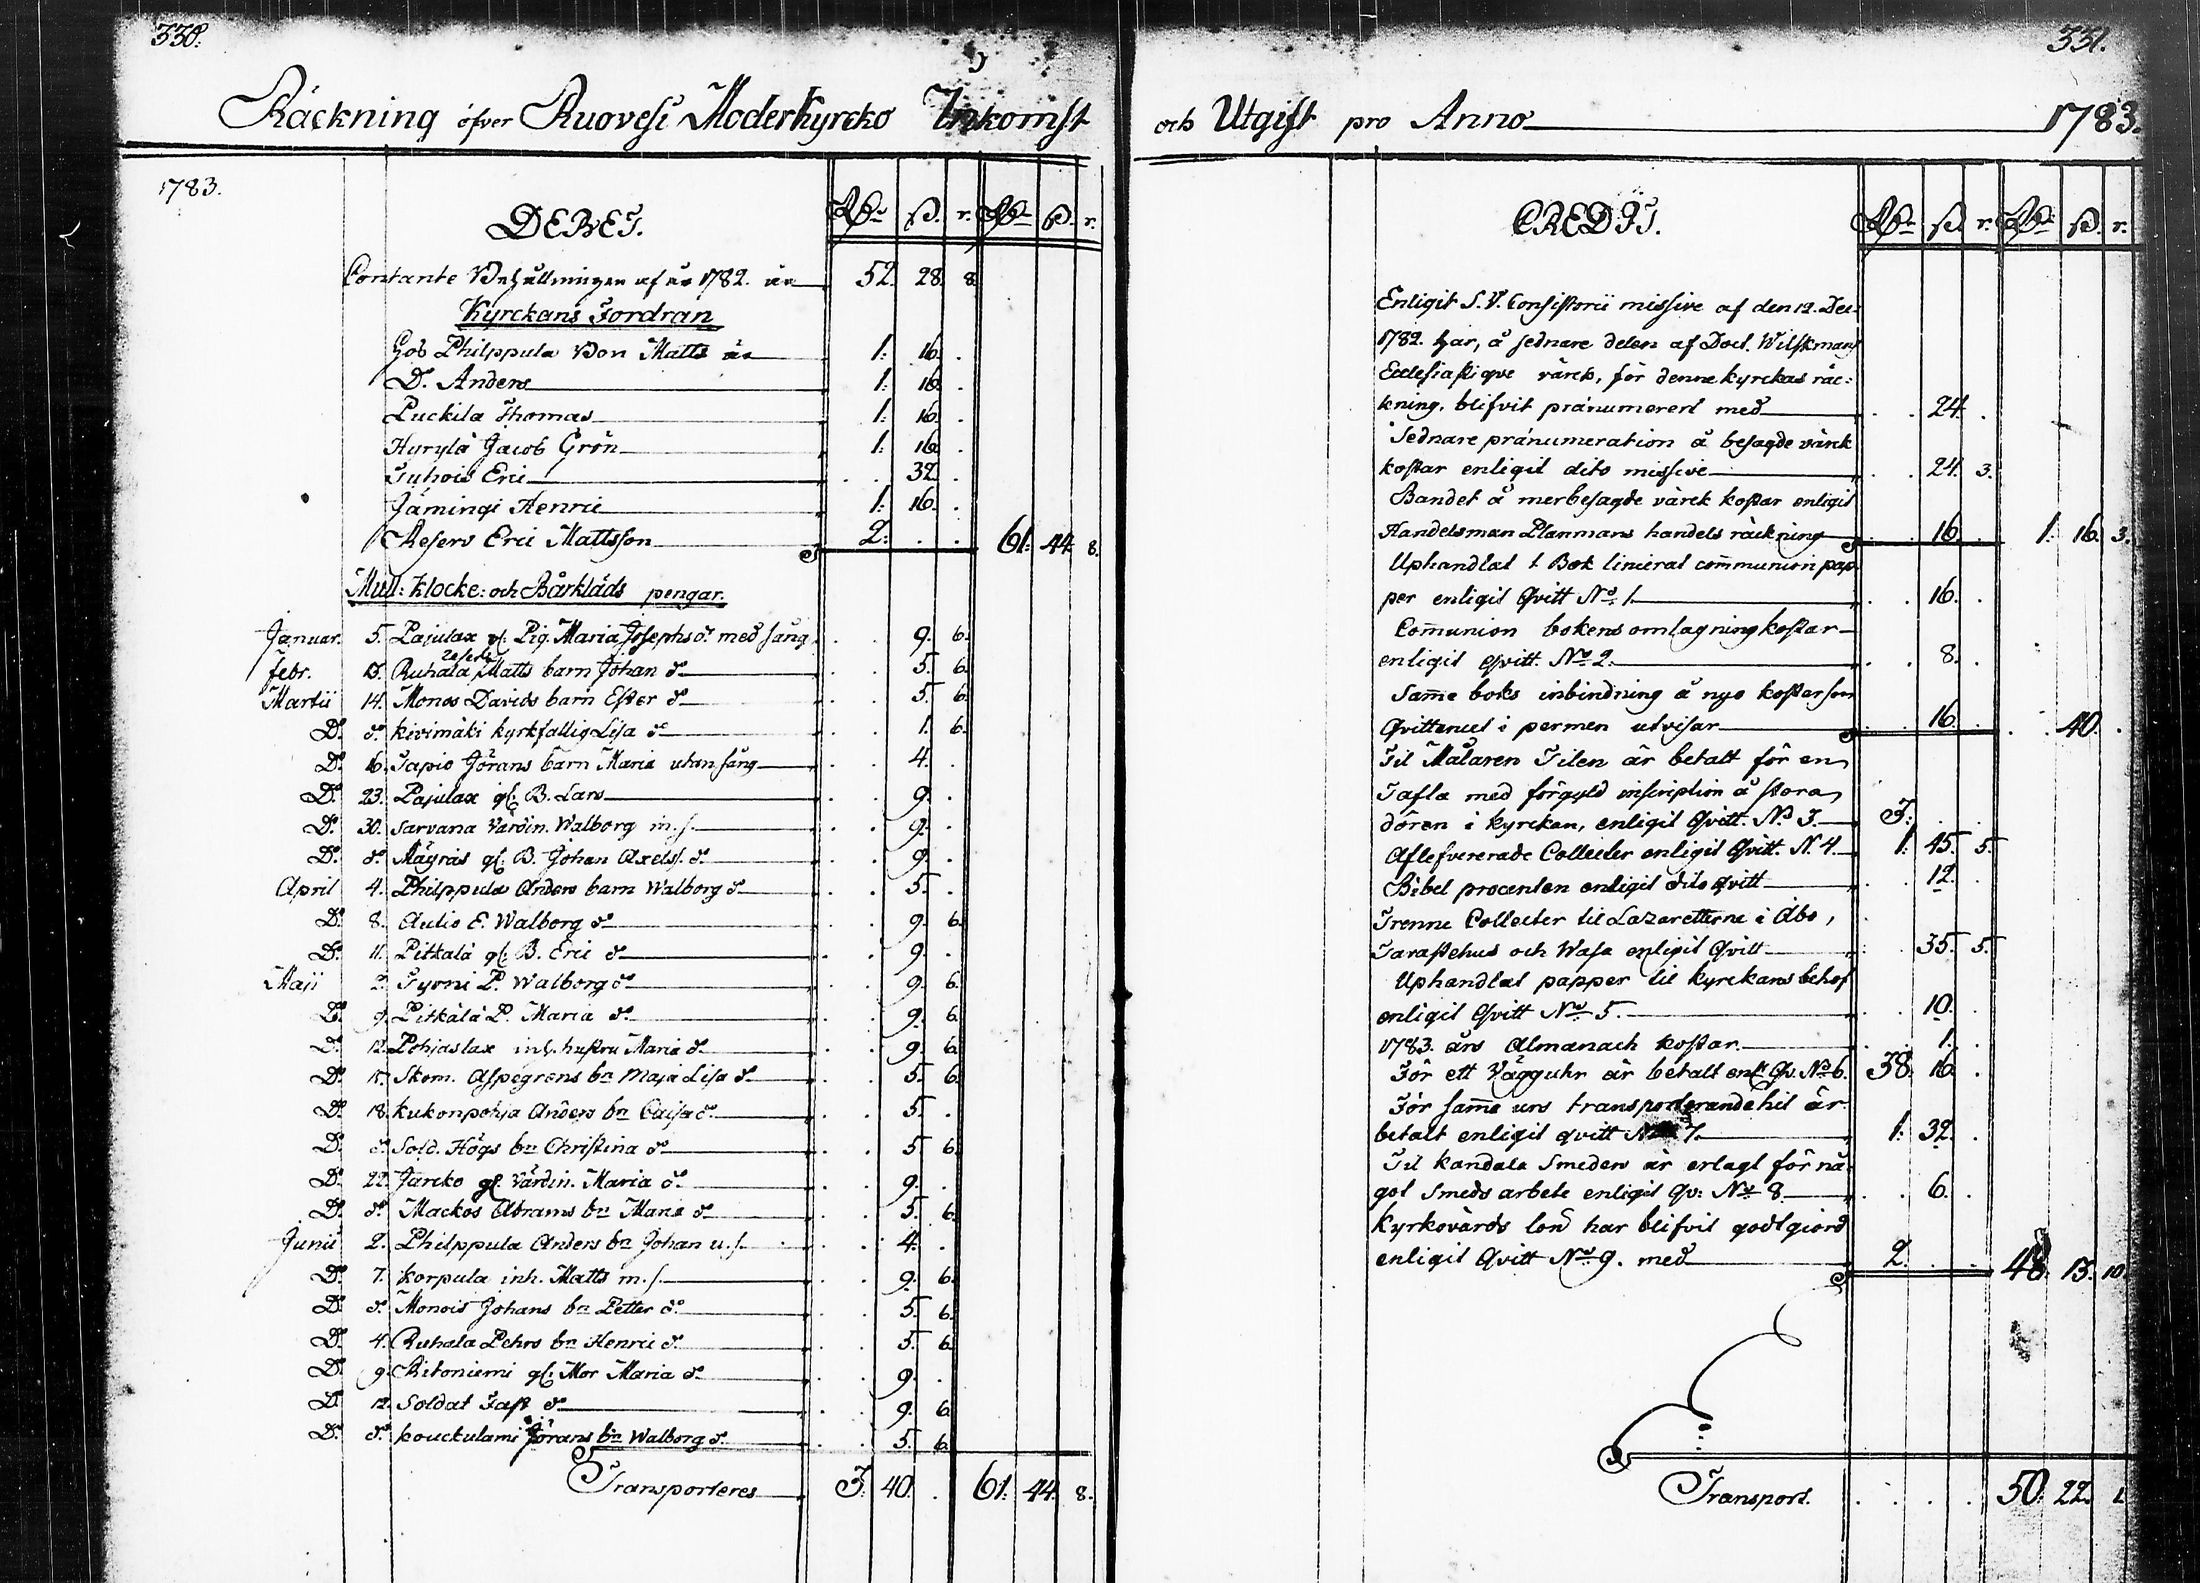 330.
Räckning öfver Ruovesi Moderkyrcko Inkomst
1783.
DEBET.
Rdr ß. r. Rdr ß. r.
Contante Behållningen af år 1782. är 52. 28. 8.
Kyrckans Fordran
Hos Philppula Bon Matts är 1: 16. .
Do. Anders 1: 16. .
Puckila Thomas 1: 16. .
Hyrylä Jacob Grön 1: 16. .
Juhois Eric . . 32. .
Jämingi Henric 1: 16. .
Reserv Eric Mattsson 2: . . 61: 44. 8.
Mull: Klocke: och Bårkläds pengar.
Januar. 5. Pajulax gl. Pig. Maria Josephsdr. med sång . . 9. 6.
Febr. Ruhala Matts barn Johan do . . 5. 6.
Martii 14. Monos Davids barn Ester do . . 5. 6.
Do. do. Kivimäki kyrkfattig Lisa do . . 1. 6.
Do. 16. Tapio Jörans barn Maria utan sång . . 4. .
Do. 23. Pajulax gl. B. Lars . . 9. .
Do. 30. Sarvana Värdin. Walborg m.s. . . 9. .
Do. do. Mäyräs gl. B. Johan Axelss. do. . . 9. .
April 4. Philppula Anders barn Walborg do . . 5. .
Do. 8. Autio E. Walborg do . . 9. 6.
Do. 11. Pitkälä gl. B. Eric do . . 9. .
Maji 2. Tyrni P. Walborg do . . 9. 6.
Do. 9. Pitkälä P. Maria do. . . 9. 6.
Do. 12. Pohjaslax inh. hustru Maria do . . 9. 6.
Do. 15. Skom. Aspegrens bn Maja Lisa do . . 5. 6.
Do. 18. Kukonpohja Anders bn Caisa do . . 5. .
Do. do. Sold. Högs bn Christina do . . 5. 6.
Do. 22. Jäncko gl. Värdin. Maria do. . . 9. .
Do. do. Mackos Abrams bn Maria do . . 5. 6.
Junii 2. Philppula Anders bn Johan u.s. . . 4. .
Do. 7. Korpula inh. Matts m.s. . . 9. 6.
Do. do. Monois Johans bn Petter do . . 5. 6.
Do. 4. Ruhala Pehrs bn Henric do. . . 5. 6.
Do. 9. Ritoniemi gl: Mor Maria do . . 9. .
Do. 12. Soldat Fast do . . 9. 6.
Do. do. Kouckulami Jörans bn Walborg do. . . 5. 6.
Transporteres 3: 40. . 61: 44. 8.
331.
och Utgift pro Anno 1783.
CREDIT.
Rdr ß. r. Rdr ß. r.
Enligit S. V. Consistorii missive af den 12. Dec:
1782. har, å sednare delen af Doct. Wilskmans
Ecclesiastique värck, för denna kyrckas räc:
kning, blifvit pränumererd med . . 24. .
Sednare pränumeration å besagde värck
kostar enligit dito missive . . 24. 3.
Bandet å merbesagde värck kostar enligit
Handelsman Planmans handels räckning . . 16. . 1: 16. 3.
Uphandlat 1 Bok linierat com̄union pap
per enligit Qvitt No. 1. . . 16. .
Com̄union bokens omlagning kostar
enligit Qvitt. No. 2. . . 8. .
Sam̄a boks inbindning å nyo kostar som
Qvittencet i permen utvisar . . 16. . . 40. .
Til Målaren Tilen är betalt för en
Tafla med förgyld inscription å stora
dören i kyrckan, enligit Qvitt. No. 3. 3: . .
Aflefvererade Collecter enligit Qvitt. N. 4. 1: 45. 5.
Bibel procenten enligit dito Qvitt . . 12. .
Trenne Collecter til Lazaretterne i Åbo,
Tavastehus och Wasa enligit Qvitt . . 35. 5.
Uphandlat papper til kyrckans behof
enligit Qvitt No. 5. . . 10. .
1783. års Almanach kostar . . 1. .
För ett Vägguhr är betalt enlt Qv. No 6. 38: 16. .
För sam̄a urs transporterande hit är
betalt enligit qvitt No 7. 1: 32. .
Til Kandala Smeden är erlagt för nå:
got Smeds arbete enligit Qv: No. 8 . . 6. .
Kyrkovärds lön har blifvit godtgiord
enligit Qvitt No. 9. med 2. . . 48. 13. 10.
Transport. . . . . 50: 22. 1.